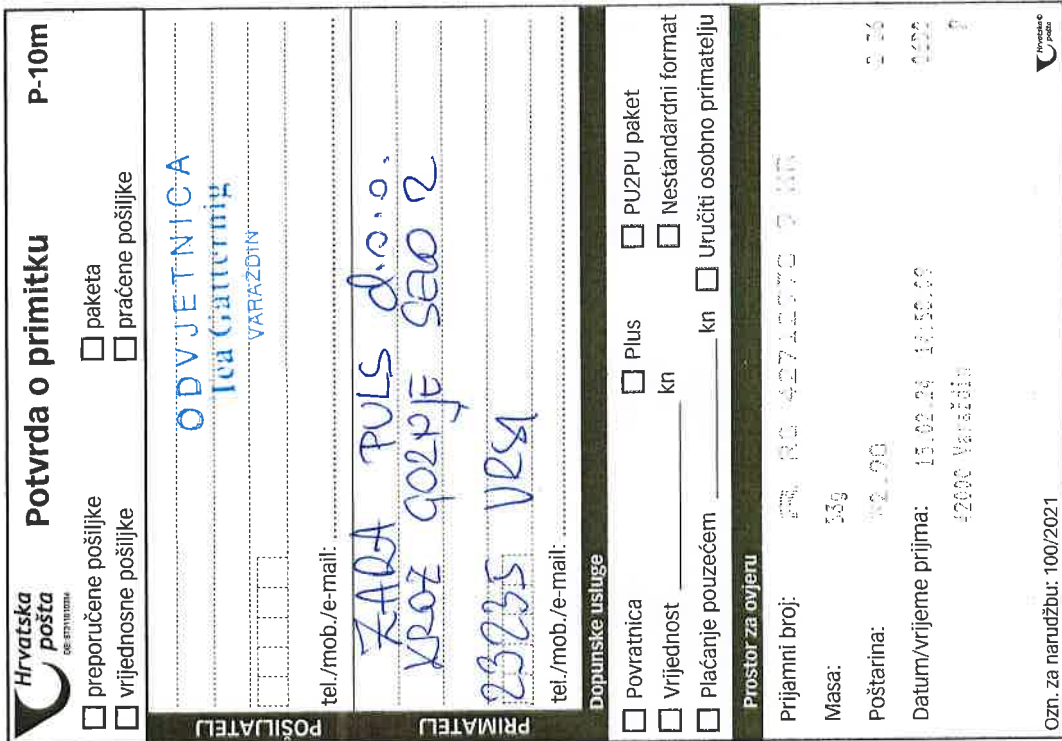 Hrvatska pošta
Potvrda o primitku
P-10m
preporučene pošiljke
paketa
vrijednosne pošiljke
praćene pošiljke
POŠILJATELJ
ODVJETNICA
VARAŽDIN
tel./mob./e-mail:
PRIMATELJ
ZARA PULS d.o.o.
KROZ GORNJE SELO 2
23235 VRSI
tel./mob./e-mail:
Dopunske usluge
Povratnica
Plus
PU2PU paket
Vrijednost kn
Nestandardni format
Plaćanje pouzećem kn
Uručiti osobno primatelju
Prostor za ovjeru
Prijamni broj:
Masa: 53g
Poštarina:
Datum/vrijeme prijma: 15.02.24
42000 Varaždin
Ozn. za narudžbu: 100/2021
Hrvatska pošta